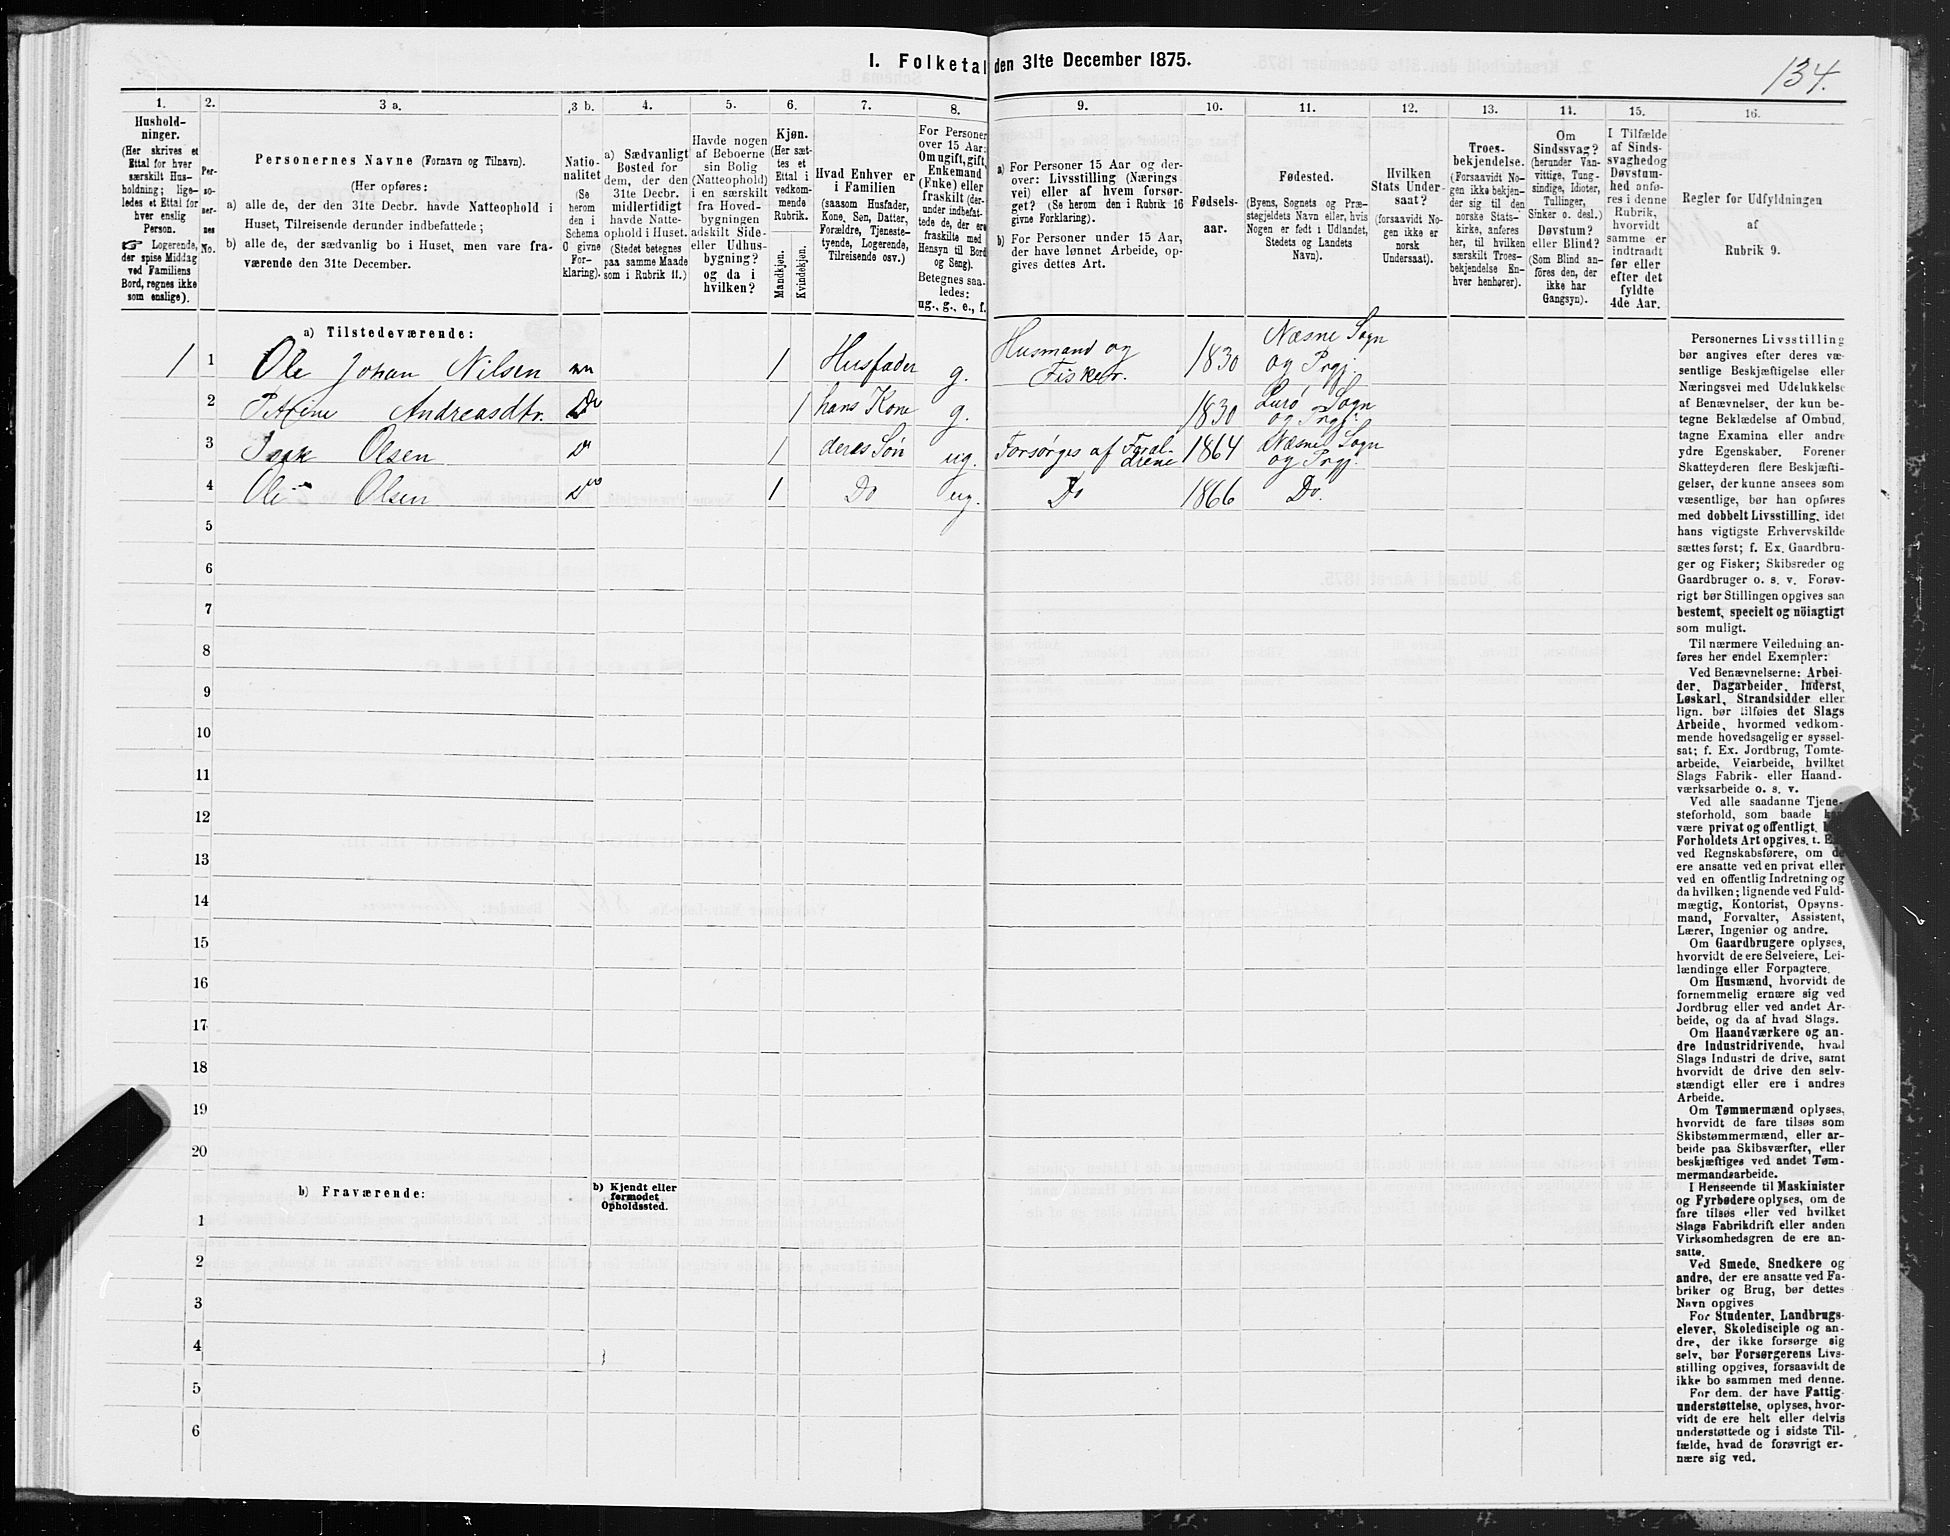 134.
I. Folketal den 31te December 1875.
1.
Hushold-
ninger.
(Her skrives et
Ettal for hver
særskilt Hus-
holdning; lige-
ledes et Ettal for
hver enslig
Person.
☞ Logerende,
der spise Middag
ved Familiens
Bord, regnes ikke
som enslige).
2.
Per-
so-
ner-
nes
No.
3 a.
Personernes Navne (Fornavn og Tilnavn).
(Her opføres:
a) alle de, der den 31te Decbr. havde Natteophold i
Huset, Tilreisende derunder indbefattede;
b) alle de, der sædvanlig bo i Huset, men vare fra-
værende den 31te December.
3 b.
Natio-
nalitet
(Se
herom
den i
Schema
C givne
For-
klaring).
4.
a) Sædvanligt
Bosted for
dem, der den
31te Decbr.
midlertidigt
havde Natte-
ophold i Huset.
(Stedet betegnes
paa samme Maade
som i Rubrik 11.)
5.
Havde nogen
af Beboerne
sin Bolig
(Natteophold)
i en særskilt
fra Hoved-
bygningen
adskilt Side-
eller Udhus-
bygning?
og da i
hvilken?
6.
Kjøn.
(Her sæt-
tes et
Ettal i
vedkom-
mende
Rubrik.
Mandkjøn.
Kvindekjøn.
7.
Hvad Enhver er
i Familien
(saasom Husfader,
Kone, Søn, Datter,
Forældre, Tjeneste-
tyende, Logerende,
Tilreisende osv.)
8.
For Personer
over 15 Aar:
Om ugift, gift,
Enkemand
(Enke) eller
fraskilt (der-
under indbefat-
tede de, der ere
fraskilte med
Hensyn til Bord
og Seng).
Betegnes saa-
ledes:
ug., g., e., f.
9.
a) For Personer 15 Aar og der-
over: Livsstilling (Nærings
vei) eller af hvem forsør-
get? (Se herom den i Rubrik 16
givne Forklaring).
b) For Personer under 15 Aar,
der have lønnet Arbeide, op-
gives dettes Art.
10.
Fødsels-
aar.
11.
Fødested.
(Byens, Sognets og Præ-
stegjeldets Navn eller, hvis
Nogen er født i Udlandet,
Stedets og Landets
Navn).
12.
Hvilken
Stats Under-
saat?
(forsaavidt No-
gen ikke er
norsk
Undersaat).
13.
Troes-
bekjendelse.
(Forsaavidt No-
gen ikke bekjen-
der sig til den
norske Stats-
kirke, anføres
her, til hvilken
særskilt Troes-
bekjendelse En-
hver henhører).
14.
Om
Sindssvag?
(herunder Van-
vittige, Tung-
sindige, Idioter,
Tullinger,
Sinker o. desl.)
Døvstum?
eller Blind?
(Som Blind an-
føres den, der
ikke har
Gangsyn).
15.
I Tilfælde
af Sinds-
svaghed og
Døvstum-
hed anfø-
res i denne
Rubrik,
hvorvidt
samme er
indtraadt
før eller
efter det
fyldte
4de Aar.
16.
Regler for Udfyldningen
af
Rubrik 9.
a) Tilstedeværende:
1 1 Ole Johan Nilsen nn 1 Husfader g. Husmand og Fisker. 1830 Næsne Sogn og Prgj.
2 Petrine Andreasdtr. Do 1 hans Kone g. 1830 Lurø Sogn og Prgj.
3 Isak Olsen Do 1 deres Søn ug. Forsørges af Foræl-drene 1864 Næsne Sogn og Prgj.
4 Ole Olsen Do 1 Do ug. Do 1866 Do.
5
6
7
8
9
10
11
12
13
14
15
16
17
18
19
20
b) Fraværende:
b) Kjendt eller
formodet
Opholdssted.
1
2
3
4
5
6
Personernes Livsstilling
bør angives efter deres væ-
sentlige Beskjæftigelse eller
Næringsvei med Udelukkelse
af Benævnelser, der kun be-
tegne Beklædelse af Ombud,
tagne Examina eller andre
ydre Egenskaber. Forener
Skatteyderen flere Beskjæfti-
gelser, der kunne ansees som
væsentlige, bør han opføres
med dobbelt Livsstilling, idet
hans vigtigste Erhvervskilde
sættes først; f. Ex. Gaardbru-
ger og Fisker; Skibsreder og
Gaardbruger o. s. v. Forøv-
rigt bør Stillingen opgives saa
bestemt, specielt og nöiagtigt
som muligt.
Til nærmere Veiledning an-
føres her endel Exempler:
Ved Benævnelserne: Arbei-
der, Dagarbeider, Inderst,
Løskarl, Strandsidder eller
lign. bør tilføies det Slags
Arbeide, hvormed vedkom-
mende hovedsagelig er syssel-
sat; f. Ex. Jordbrug, Tomte-
arbeide, Veiarbeide, hvilket
Slags Fabrik- eller Haand-
værksarbeide o. s. v.
Ved alle saadanne Tjene-
steforhold, som baade
være privat og offentligt,
Forholdets Art opgives, t.
ved Regnskabsførere, om
ere ansatte ved en privat eller
ved en offentlig Indretning og
da hvilken; lignende ved Fuld-
mægtig, Kontorist, Opsyns-
mand, Forvalter, Assistent,
Lærer, Ingeniør og andre.
Om Gaardbrugere oplyses,
hvorvidt de ere Selveiere, Lei-
lændinge eller Forpagtere.
Om Husmænd, hvorvidt de
fornemmelig ernære sig ved
Jordbrug eller ved andet Ar-
beide, og da af hvad Slags.
Om Haandværkere og an-
dre Industridrivende, hvad
Slags Industri de drive, samt
hvorvidt de drive den selv-
stændigt eller ere i andres
Arbeide.
Om Tømmermænd oplyses,
hvorvidt de fare tilsøs som
Skibstømmermænd, eller ar-
beide paa Skibsværfter, eller
beskjæftiges ved andet Tøm-
mermandsarbeide.
I Henseende til Maskinister
og Fyrbødere oplyses, om de
fare tilsøs eller ved hvilket
Slags Fabrikdrift eller anden
Virksomhedsgren de ere an-
satte.
Ved Smede, Snedkere og
andre, der ere ansatte ved Fa-
briker og Brug, bør dettes
Navn opgives
For Studenter, Landbrugs-
elever, Skoledisciple og an-
dre, der ikke forsørge sig
selv, bør Forsørgerens Livs-
stilling opgives, forsaavidt de
ikke bo sammen med denne.
For dem, der have Fattig-
understøttelse, oplyses, hvor-
vidt de ere helt eller delvis
understøttede og i sidste Til-
fælde, hvad de forøvrigt er-
nære sig ved.